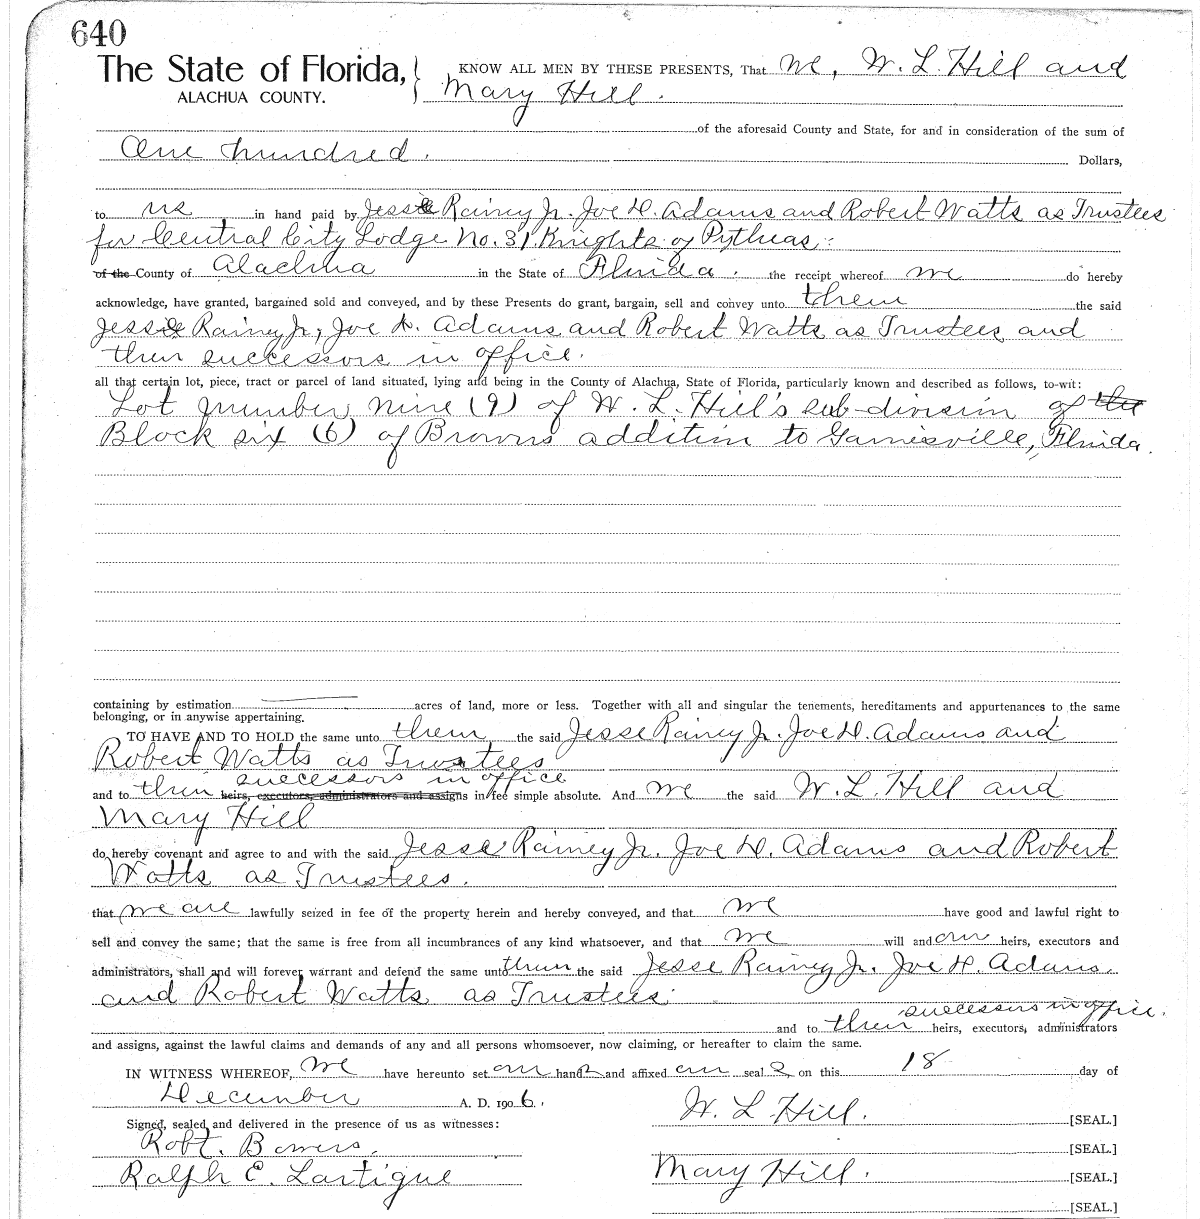 640
The State of Florida, } KNOW ALL MEN BY THESE PRESENTS, That We, W. L. Hill and
ALACHUA COUNTY. Mary Hill.
of the aforesaid County and State, for and in consideration of the sum of
One hundred. Dollars,
to us in hand paid by Jesse Rainey Jr. Joe H. Adams and Robert Watts as Trustees
for Central City Lodge No. 31 Knights of Pytheas:
of the County of Alachua in the State of Florida. the receipt whereof we do hereby
acknowledge, have granted, bargained sold and conveyed, and by these Presents do grant, bargain, sell and convey unto them the said
Jesse Rainey Jr, Joe H. Adams and Robert Watts as Trustees and
their successors in office.
all that certain lot, piece, tract or parcel of land situated, lying and being in the County of Alachua, State of Florida, particularly known and described as follows, to-wit:
Lot number nine (9) of W. L. Hill's sub-division of the
Block six (6) of Browns addition to Gainesville, Florida.
containing by estimation acres of land, more or less. Together with all and singular the tenements, hereditaments and appurtenances to the same
belonging, or in anywise appertaining.
TO HAVE AND TO HOLD the same unto them the said Jesse Rainey Jr. Joe H. Adams and
Robert Watts as Trustees
successors in office
and to their heirs, executors, administrators and assigns in fee simple absolute. And we the said W. L. Hill and
Mary Hill
do hereby covenant and agree to and with the said Jesse Rainey Jr. Joe H. Adams and Robert
Watts as Trustees.
that we are lawfully seized in fee of the property herein and hereby conveyed, and that we have good and lawful right to
sell and convey the same; that the same is free from all incumbrances of any kind whatsoever, and that we will and our heirs, executors and
administrators, shall and will forever warrant and defend the same unto them the said Jesse Rainey Jr. Joe H. Adams
and Robert Watts as Trustees
successors in office.
and to their heirs, executors, administrators
and assigns, against the lawful claims and demands of any and all persons whomsoever, now claiming, or hereafter to claim the same.
IN WITNESS WHEREOF, we have hereunto set our hands and affixed our seals on this 18 day of
December A. D. 1906.
W. L. Hill. [SEAL.]
Signed, sealed and delivered in the presence of us as witnesses:
Robt. Bowers. [SEAL.]
Ralph E. Lartigue Mary Hill. [SEAL.]
[SEAL.]